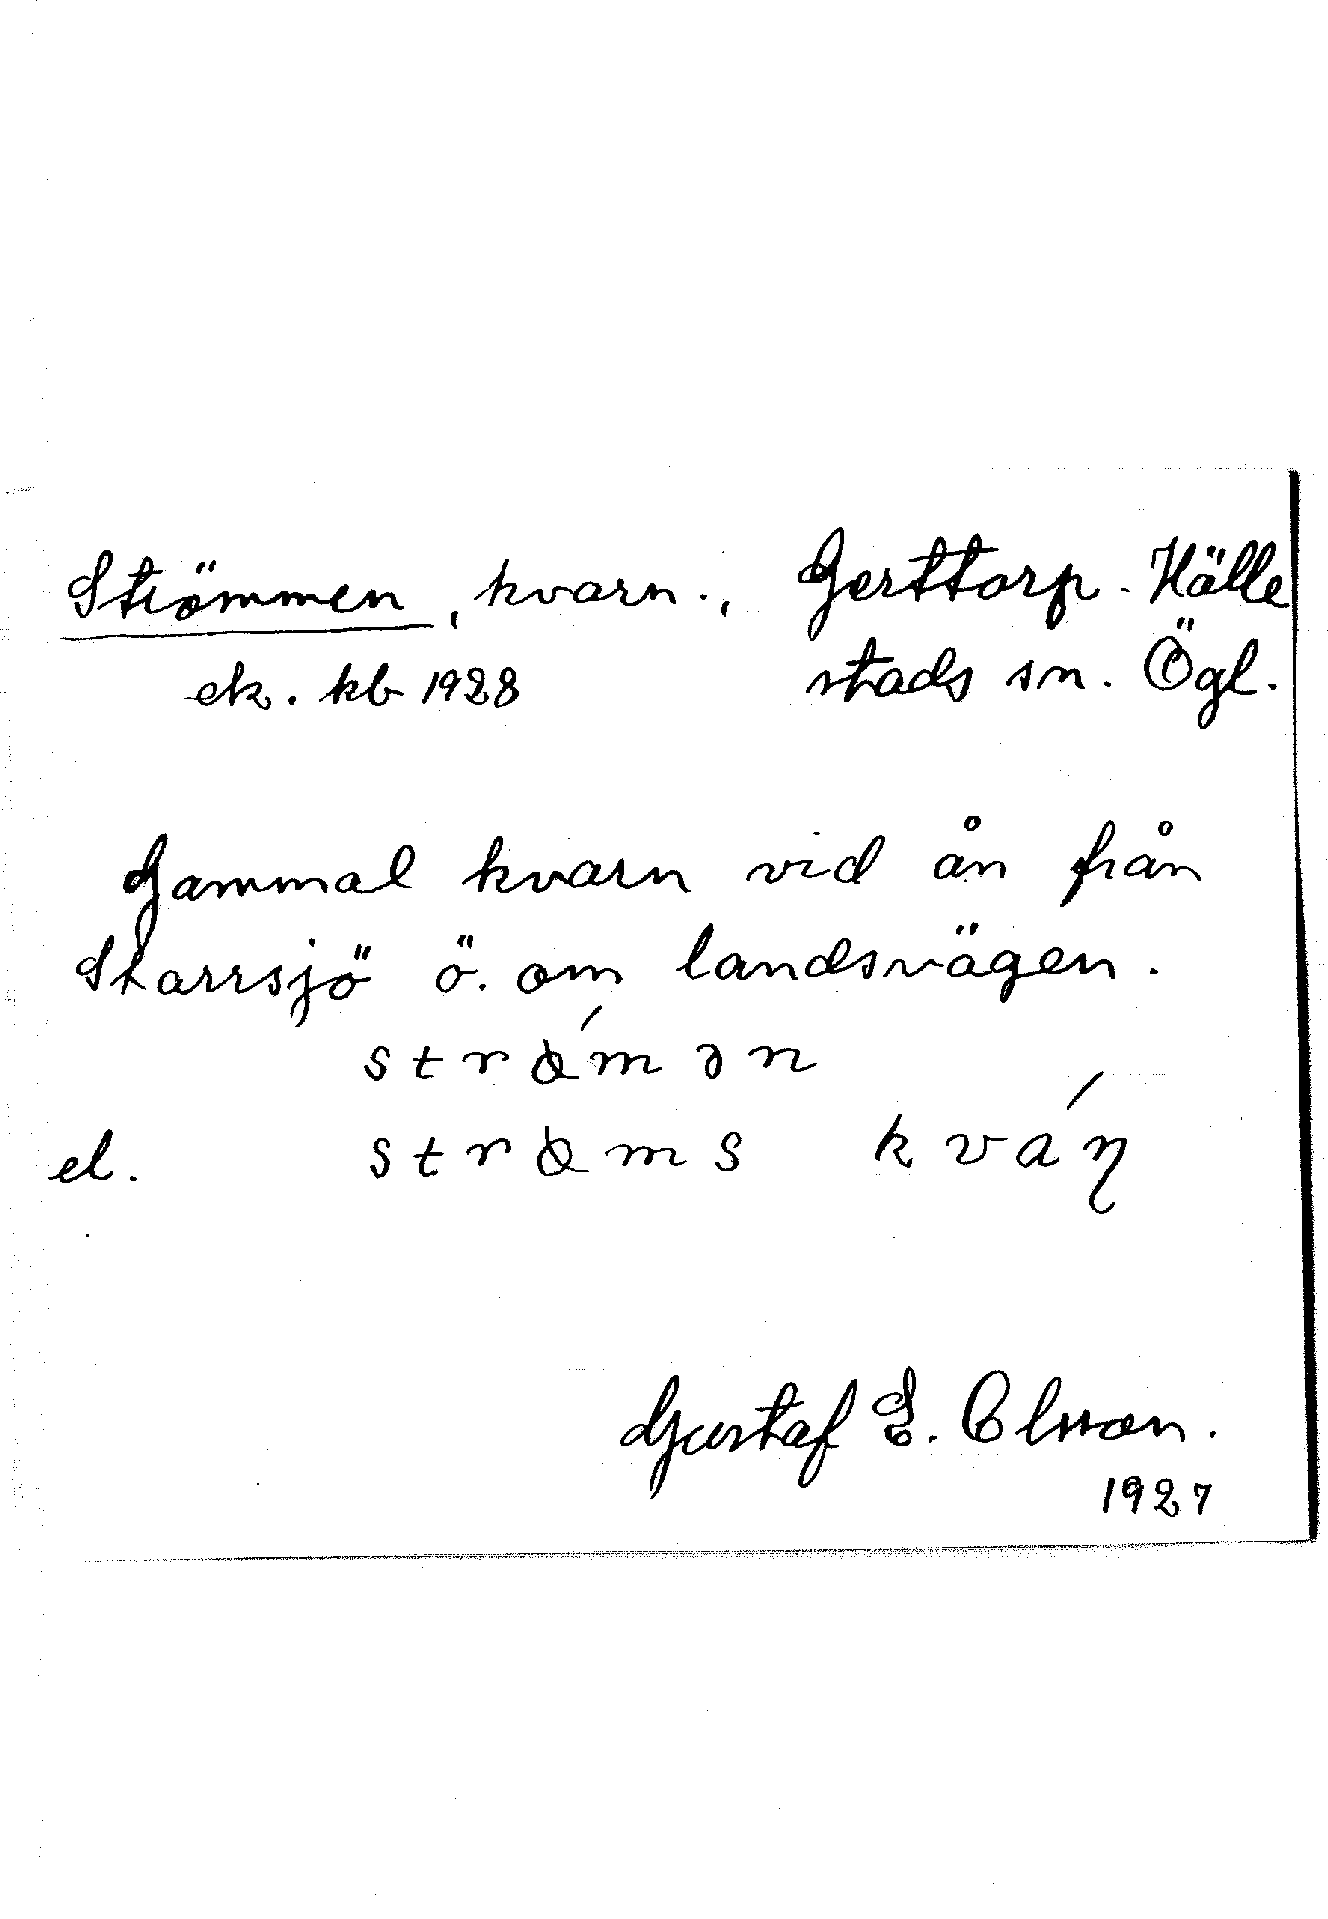 Strömmen, kvarn., Gerttorp. Hälle
ek. kb 1928 stads sn. Ögl.
Gammal kvarn vid ån från
Starrsjö ö. om landsvägen.
strø̀́mən
el. strøms kváɳ
Gustaf E. Olsson.
1927